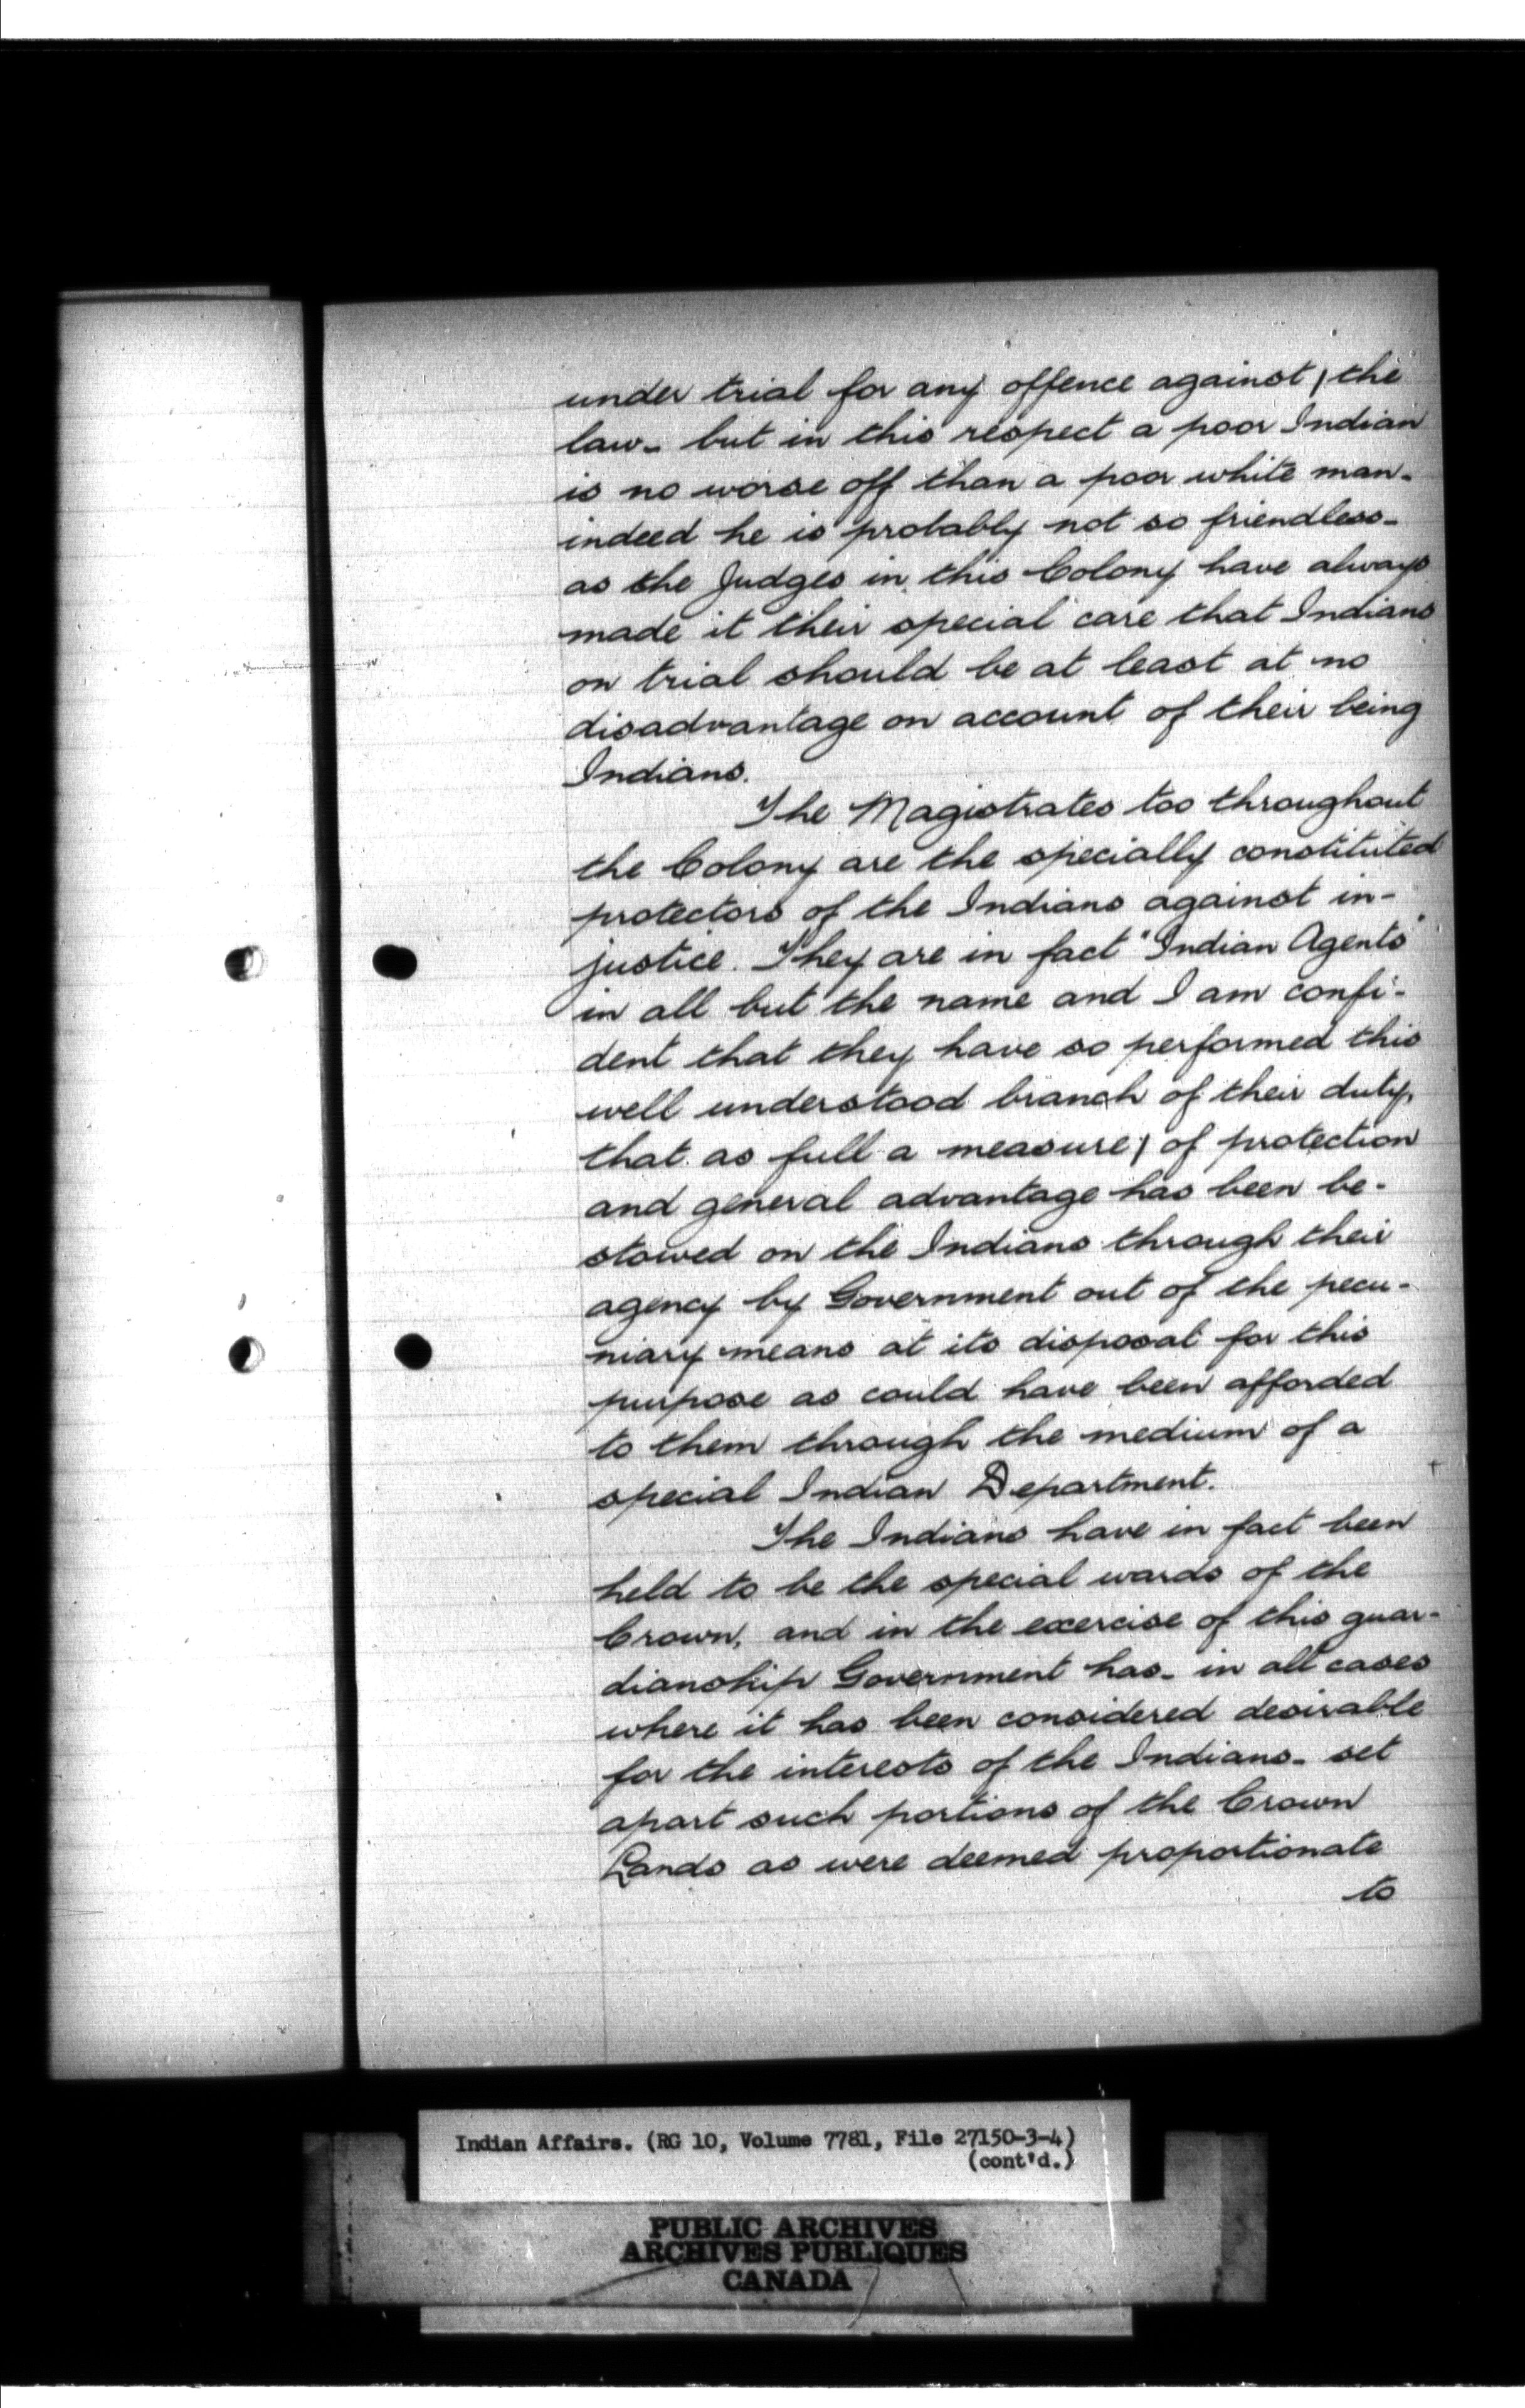 under trial for any offence against, the
law - but in this respect a poor Indian
is no worse off than a poor white man -
indeed he is probably not so friendless -
as the Judges in this Colony have always
made it their special care that Indians
on trial should be at least at no
disadvantage on account of their being
Indians.
The Magistrates too throughout
the Colony are the specially constituted
protectors of the Indians against in-
justice. They are in fact "Indian Agents"
in all but the name and I am confi-
dent that they have so performed this
well understood branch of their duty,
that as full a measure, of protection
and general advantage has been be-
stowed on the Indians through their
agency by Government out of the pecu-
niary means at its disposal for this
purpose as could have been afforded
to them through the medium of a
special Indian Department.
The Indians have in fact been
held to be the special wards of the
Crown, and in the exercise of this guar-
dianship Government has - in all cases
where it has been considered desirable
for the interests of the Indians - set
apart such portions of the Crown
Lands as were deemed proportionate
to
Indian Affairs. (RG 10, Volume 7781, File 27150-3-4)
(cont'd.)
PUBLIC ARCHIVES
ARCHIVES PUBLIQUES
CANADA